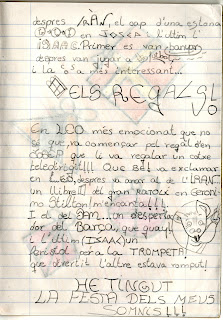 despres IVÀN, el cap d'una estona
en JOSEP i l'últim l'
ISAAC. Primer es van
despres van jugar a
i la o a més interessant...
ELS REGALS!
En 200 més emocional que no
sé que va començar pel regal d'en
JOSEP que li va regalar un cobre
teleobres!!! QUE BÉ! va exclamar
en LEO, despres va anar al de l'IVAN
un llibret del gran RATOLÍ en Geroni-
mo Stilton m'encanta!!!
I el del JAN... un desperta-
dor del Barça, que guay!
i l'últim (ISAAC) un
Pen per a la TROMPETA
que divertit l'altre estava romput!
HE TINGUT
LA FESTA DELS MEUS
SOMNIS!!!